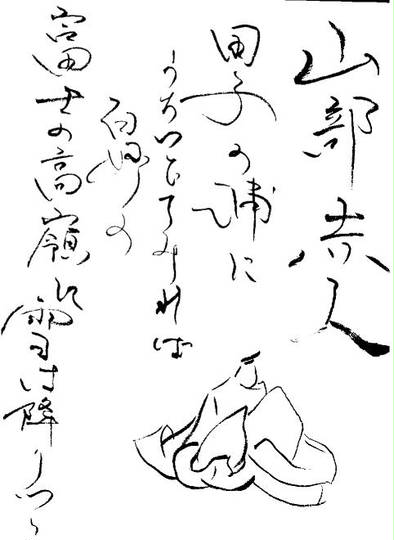 山部赤人
田子の浦に
うちいでてみれば
白妙の
富士の高嶺に雪は降りつゝ